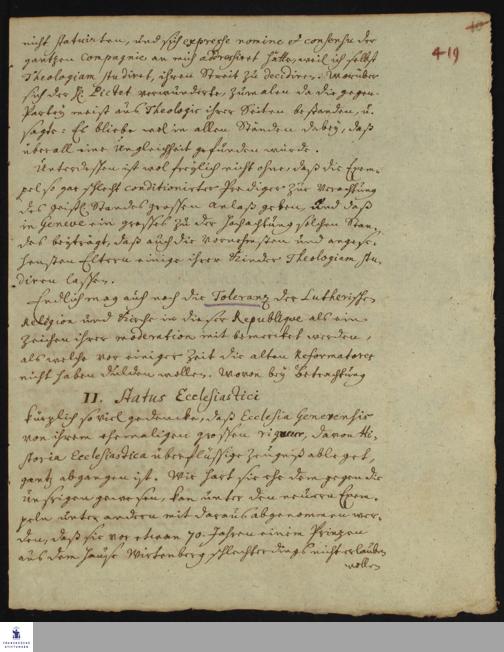 40
419
nicht statuirten, und sich expresse nomine et consensu der
gantzen Compagnie an mich adressiret hätte, weil ich selbst
Theologiam studiret, ihren Streit zu decidiren. Worüber
sich der H. Pictet verwunderte, zumalen da die gegen-
Partey meist aus Theologis ihrer Seiten bestanden, u.
sagte: Es bliebe wol in allen Ständen dabey, daß
überall eine Ungleichheit gefunden würde.
Unterdessen ist wol freylich nicht ohne, daß die Exem-
pel so gar schlecht conditionirter Prediger zur Verachtung
des geistl. Standes grossen anlaß geben, und daß
in Geneve ein grosses zu der Hochachtung solchen Stan-
des beyträgt, daß auch die vornehmsten und angese-
hensten Eltern einige ihrer Kinder Theologiam stu-
diren lassen.
Endlich mag auch noch die Toleranz der Lutherischen
Religion und Kirche in dieser Republique als ein
Zeichen ihrer moderation mit bemercket werden,
als welche vor einiger Zeit die alten Reformatores
nicht haben dulden wollen. Wovon bey Betrachtung
II. Status Ecclesiastici
kürzlich so viel gedencke, daß Ecclesia Genevensis
von ihrem ehemaligen grossen rigueur, davon Hi-
storia Ecclesiastica überflüssige Zeugniß ableget,
gantz abgegangen ist. Wie hart sie ehedem gegen die
Unsrigen gewesen, kan unter den neuern Exem-
peln unter andern mit daraus abgenommen wer-
den, daß sie vor etwan 70. Jahren einem Prinzen
aus dem Hause Wirtenberg schlechterdings nicht erlauben
wollen
FRANCKESCHE
STIFTUNGEN